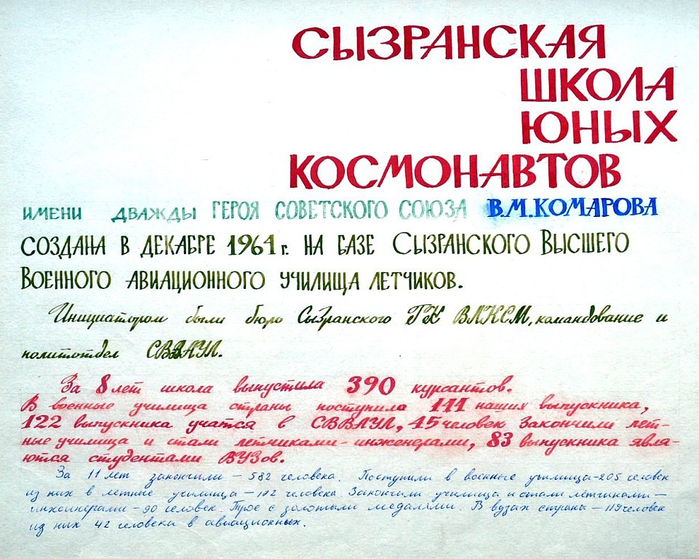 СЫЗРАНСКАЯ
ШКОЛА
ЮНЫХ
КОСМОНАВТОВ
ИМЕНИ ДВАЖДЫ ГЕРОЯ СОВЕТСКОГО СОЮЗА В.М.КОМАРОВА
СОЗДАНА В ДЕКАБРЕ 1961 г. НА БАЗЕ СЫЗРАНСКОГО ВЫСШЕГО
ВОЕННОГО АВИАЦИОННОГО УЧИЛИЩА ЛЕТЧИКОВ.
Инициатором были бюро Сызранского ГК ВЛКСМ, командование и
политотдел СВВАУЛ.
За 8 лет школа выпустила 390 курсантов.
В военные училища страны поступила 141 наших выпускника,
122 выпускника учатся в СВВАУЛ, 45 человек закончили лет-
ные училища и стали летчиками-инженерами, 83 выпускника явля-
ются студентами ВУЗов.
За 11 лет закончили – 582 человека. Поступили в военные училища – 205 человек
из них в летные училища – 182 человека Закончили училища и стали летчиками –
инженерами – 90 человек. Трое с золотыми медалями. В вузах страны – 119 человек
из них 42 человека в авиационных.